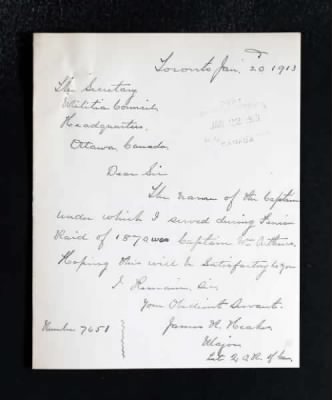 Toronto Jan. 20 1913
The Secretary
Militia Council
Headquarters.
Ottawa Canada
Dear Sir
The name of the Captain
under which I served during Fenian
Raid of 1870 was Captain Wm
Hoping this will be Satisfactory to you
I Remain, Sir
Your Obedient Servant.
Number 7651
James H.
Major
CANADA